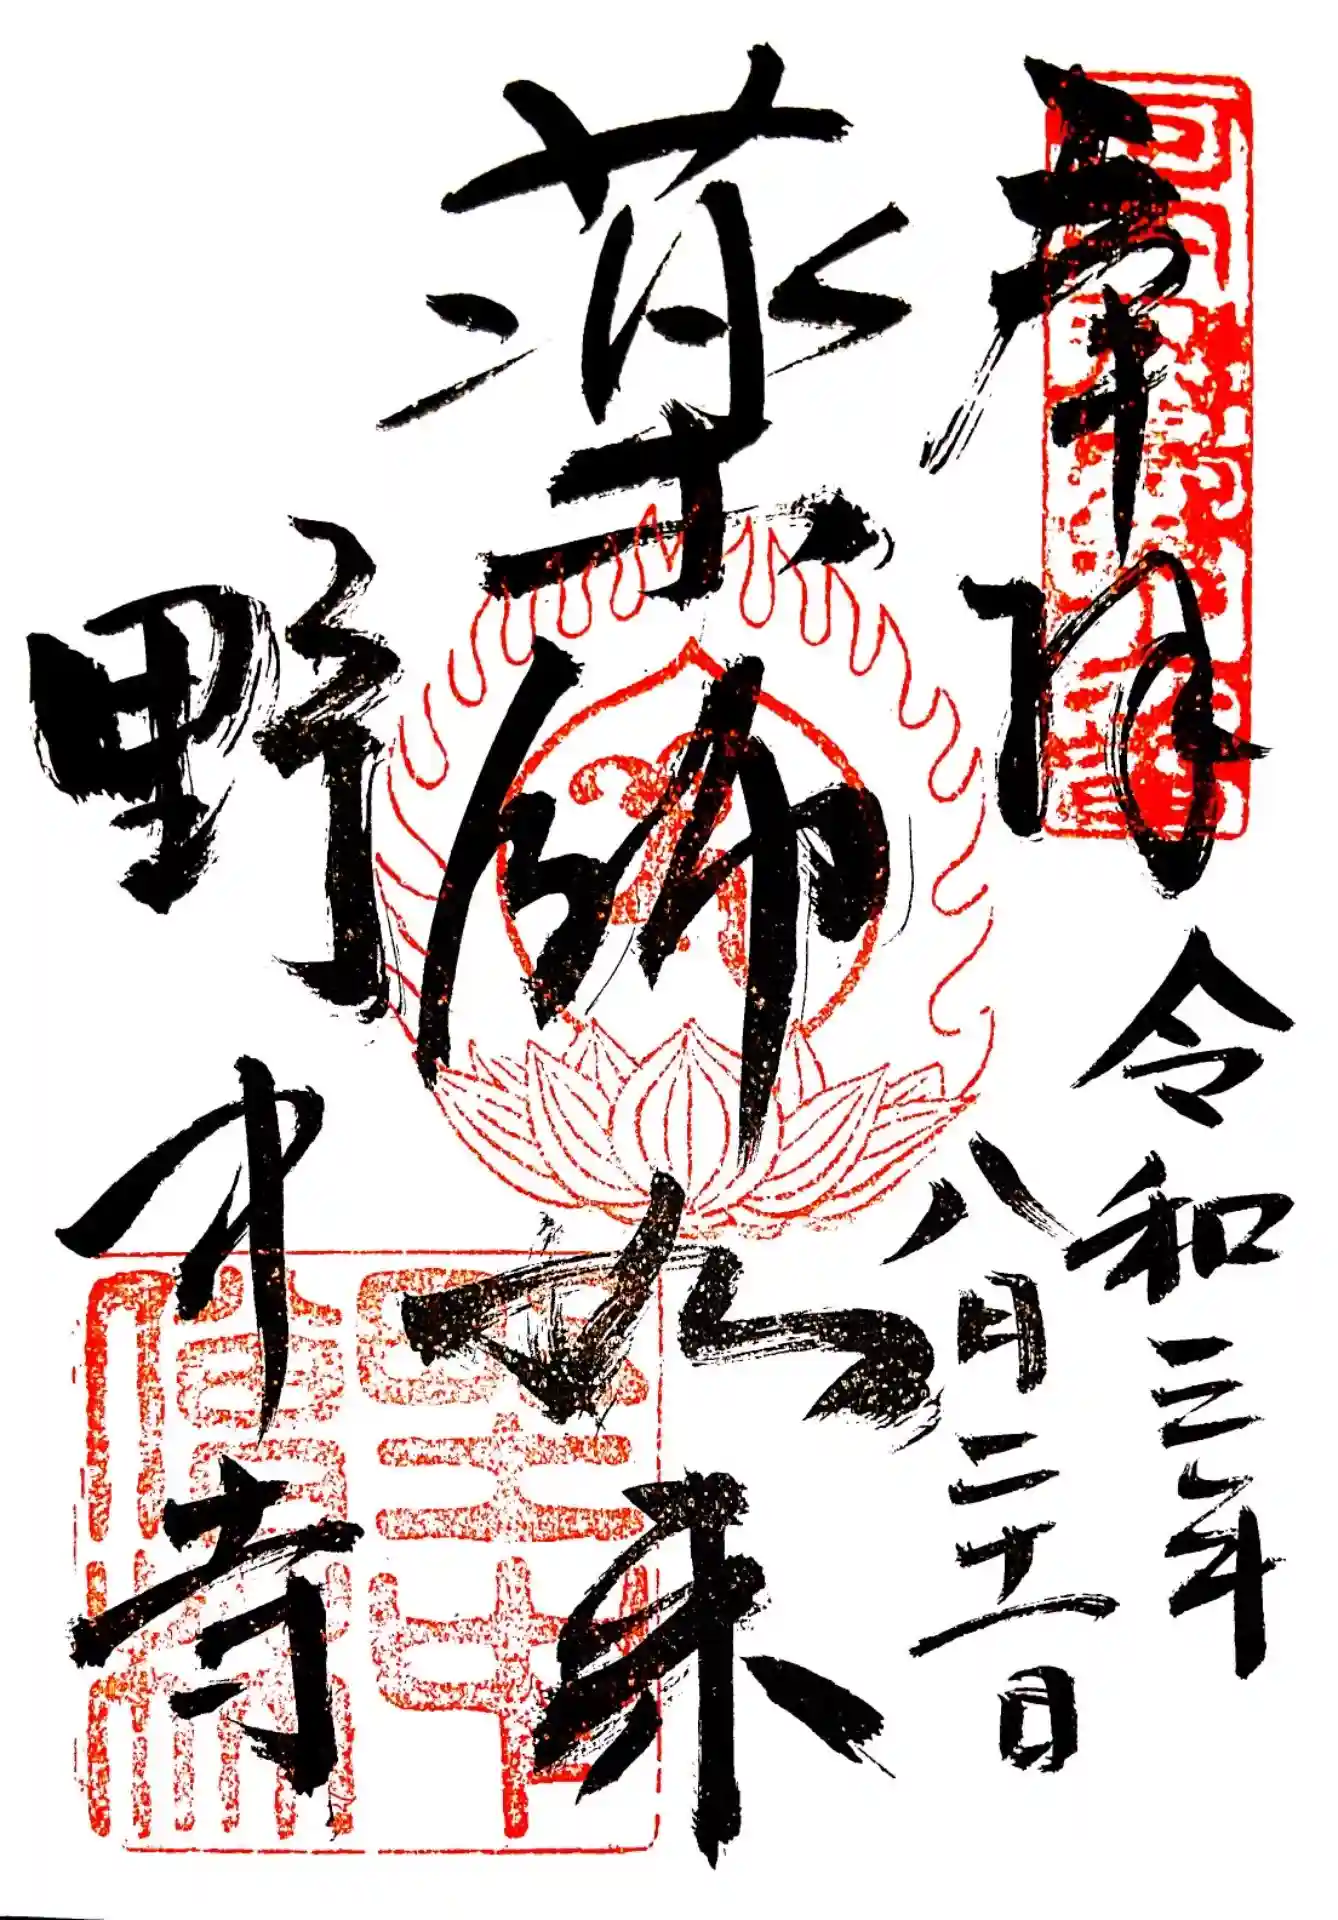 奉拝
令和三年
八月二十一日
薬師如来
野中寺